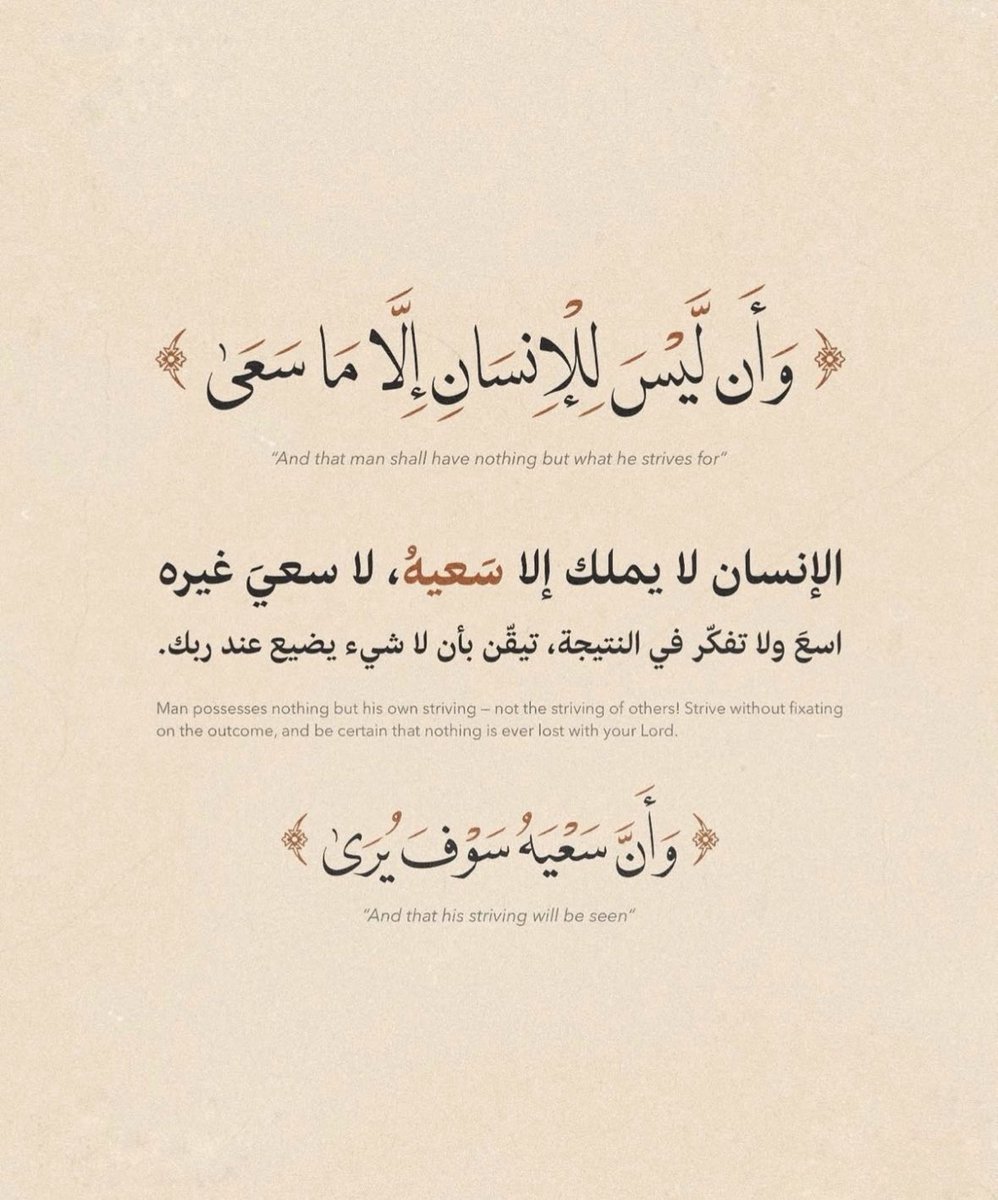 ﴿ وَأَن لَّيْسَ لِلْإِنسَانِ إِلَّا مَا سَعَىٰ ﴾
“And that man shall have nothing but what he strives for”
الإنسان لا يملك إلا سَعيهُ، لا سعيَ غيره
اسعَ ولا تفكّر في النتيجة، تيقّن بأن لا شيء يضيع عند ربك.
Man possesses nothing but his own striving – not the striving of others! Strive without fixating
on the outcome, and be certain that nothing is ever lost with your Lord.
﴿ وَأَنَّ سَعْيَهُ سَوْفَ يُرَىٰ ﴾
“And that his striving will be seen“